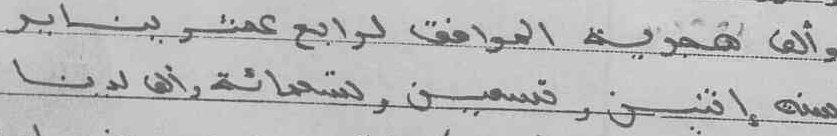 وألف هجرية الموافق لرابع عشر يناير
سنة إثنين وتسعين وتسعمائة وألف لدينا